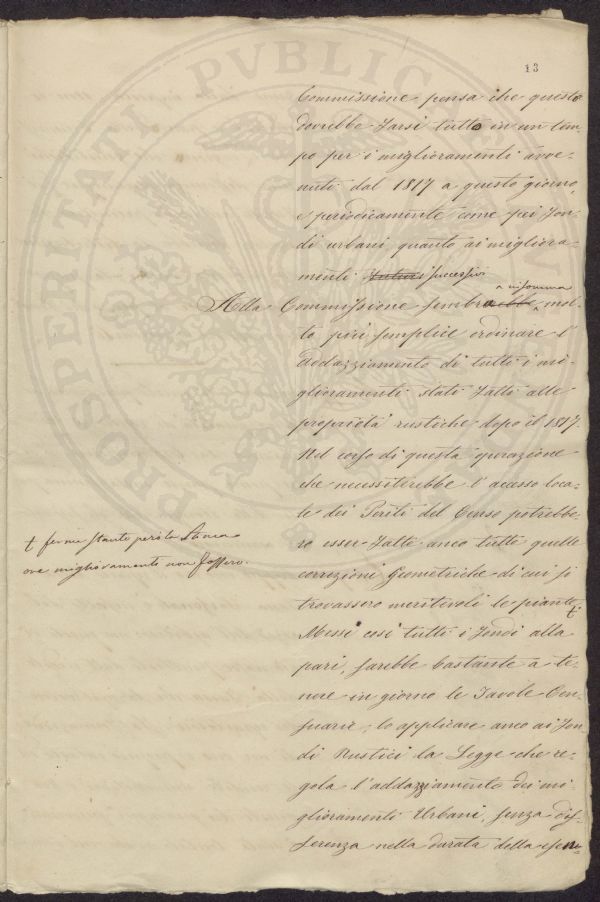 13
Commissione pensa che questo
dovrebbe farsi tutto in un tem-
po per i miglioramenti avve-
nuti dal 1817 a questo giorno,
e periodicamente come pei fon-
di urbani quanto ai migliora-
menti futuri successivi
Alla Commissione sembrerebbe insomma mol-
to più semplice ordinare l'
addazziamento di tutti i mi-
glioramenti stati fatti alle
proprietà rustiche dopo il 1817.
Nel corso di questa operazione
che necessiterebbe l'accesso loca-
le dei Periti del Censo potrebbe-
ro esser fatte anco tutte quelle
correzioni Geometriche di cui si
trovassero meritevoli le piante +
+ ferme stante però le Stime
ove miglioramento non fossero.
Messi così tutti i fondi alla
pari, sarebbe bastante a te-
nere in giorno le Tavole Cen-
suarie, lo applicare anco ai fon-
di Rustici la Legge che re-
gola l'addazziamento dei mi-
glioramenti Urbani, senza dif-
ferenza nella durata della esen-
PROSPERITATI PVBLICAE